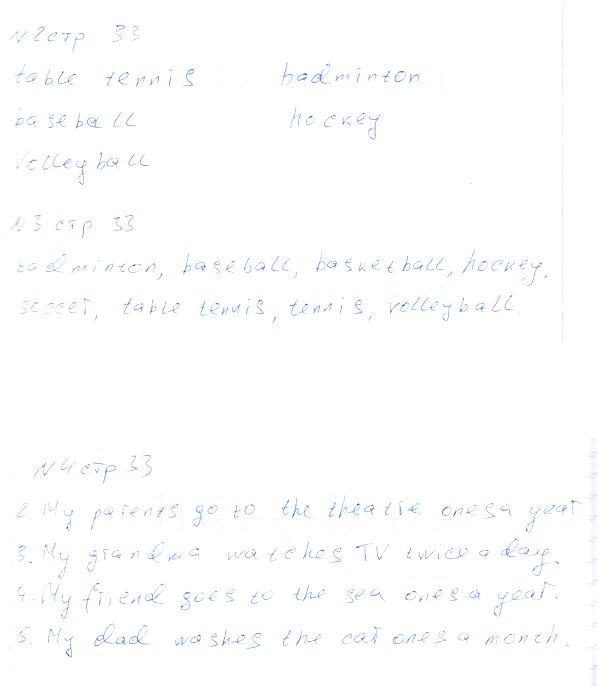 N 2 стр 33
table tennis badminton
baseball hockey
volleyball
N3 стр 33
badminton, baseball, basketball, hockey,
soccer, table tennis, tennis, volleyball
N4 стр 33
2. My parents go to the theatre ones a year.
3. My grandma watches TV twice a day.
4. My friend goes to the sea ones a year.
5. My dad washes the car ones a month.